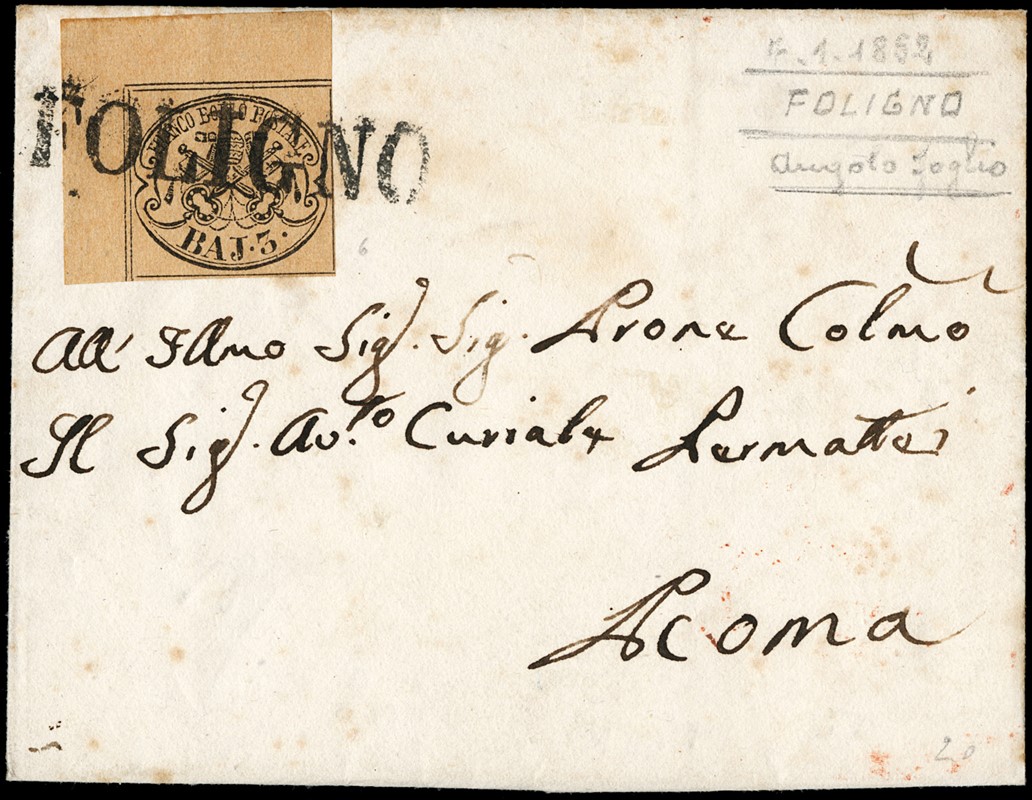 FRANCO BOLLO POSTALE
BAJ. 3.
FOLIGNO
1.1852
FOLIGNO
angolo foglio
6
All' Illmo Sig. Sig. Prone Colmo
Il Sig. Avto Curiale Permattei
Roma
20